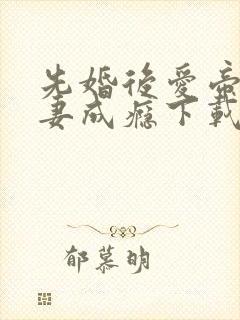 先婚後愛帝
妻成癮下載
郁慕明